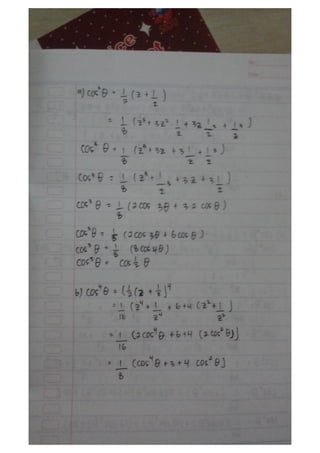 a) cos³θ = 1/2 (z + 1/z)
= 1/8 (z³ + 3z² 1/z + 3z 1/z² + 1/z³)
cos³ θ = 1/8 (z³ + 3z + 3 1/z + 1/z³)
cos³ θ = 1/8 (z³ + 1/z³ + 3z + 3 1/z)
cos³ θ = 1/8 (2 cos 3θ + 3·2 cos θ)
cos³ θ = 1/8 (2 cos 3θ + 6 cos θ)
cos³ θ = 1/8 (8 cos 4θ)
cos³ θ = cos 1/2 θ
b) cos⁴ θ = (1/2 (z + 1/z))⁴
= 1/16 (z⁴ + 1/z⁴ + 6 + 4 (z² + 1/z)
= 1/16 (2 cos⁴ θ + 6 + 4 (2 cos² θ)]
= 1/8 (cos⁴ θ + 3 + 4 cos² θ]